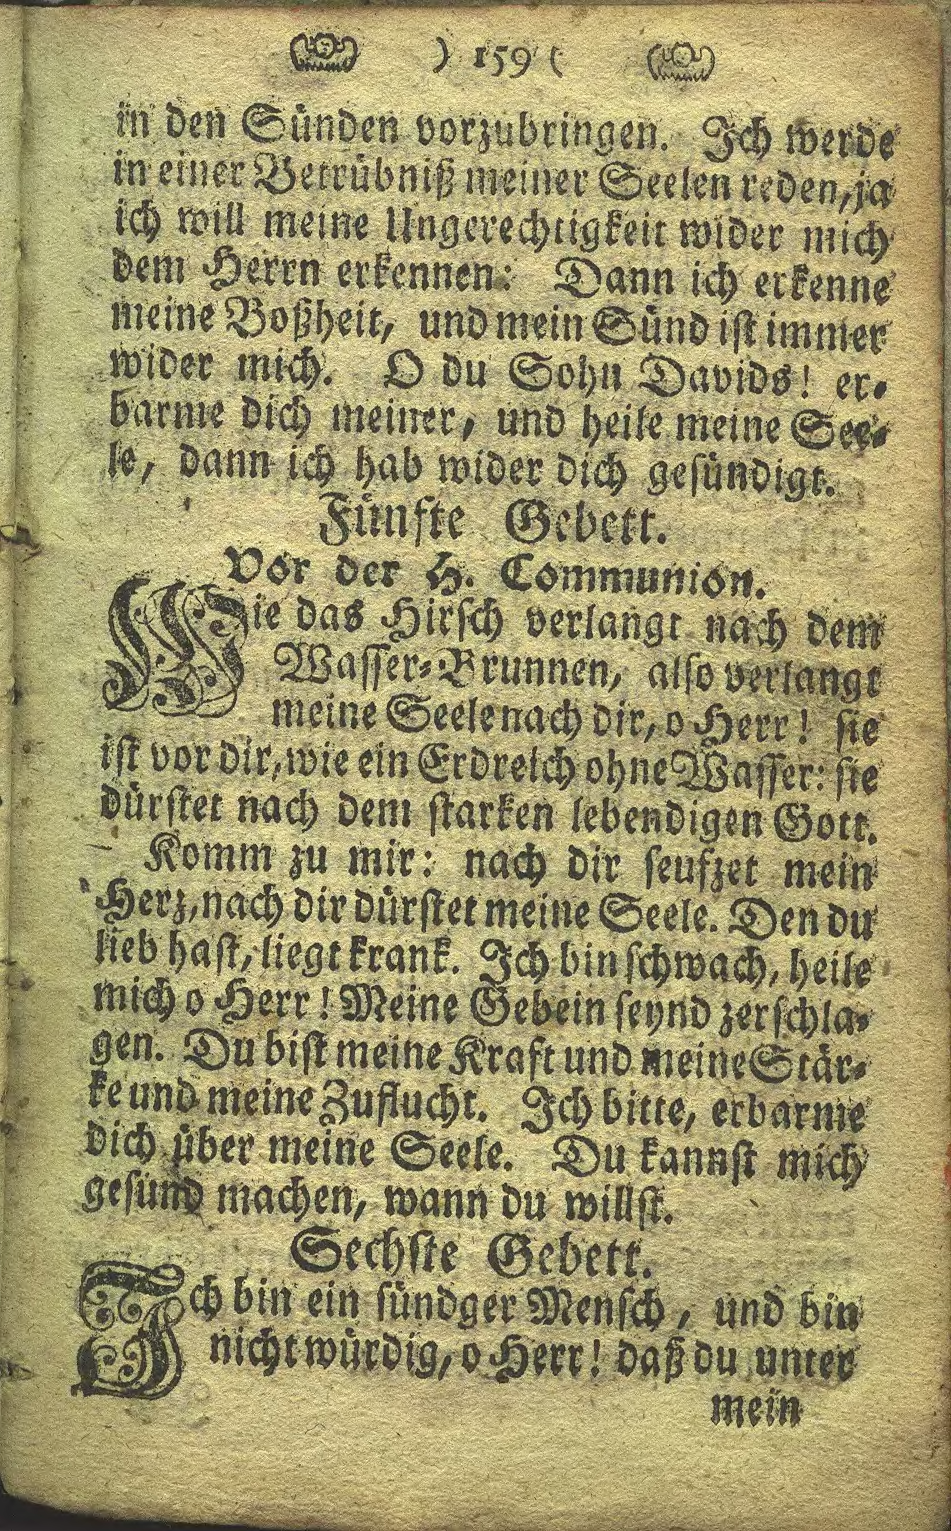 ) 159 (
in den Sünden vorzubringen. Ich werde
in einer Betrübniß meiner Seelen reden, ja
ich will meine Ungerechtigkeit wider mich
dem Herrn erkennen: Dann ich erkenne
meine Boßheit, und mein Sünd ist immer
wider mich. O du Sohn Davids! er-
barme dich meiner, und heile meine See-
le, dann ich hab wider dich gesündigt.
Fünfte Gebett.
Vor der H. Communion.
Wie das Hirsch verlangt nach dem
Wasser-Brunnen, also verlangt
meine Seele nach dir, o Herr! sie
ist vor dir, wie ein Erdreich ohne Wasser: sie
dürstet nach dem starken lebendigen Gott.
Komm zu mir: nach dir seufzet mein
Herz, nach dir dürstet meine Seele. Den du
lieb hast, liegt krank. Ich bin schwach, heile
mich o Herr! Meine Gebein seynd zerschla-
gen. Du bist meine Kraft und meine Stär-
ke und meine Zuflucht. Ich bitte, erbarme
dich über meine Seele. Du kannst mich
gesund machen, wann du willst.
Sechste Gebett.
Ich bin ein sündger Mensch, und bin
nicht würdig, o Herr! daß du unter
mein